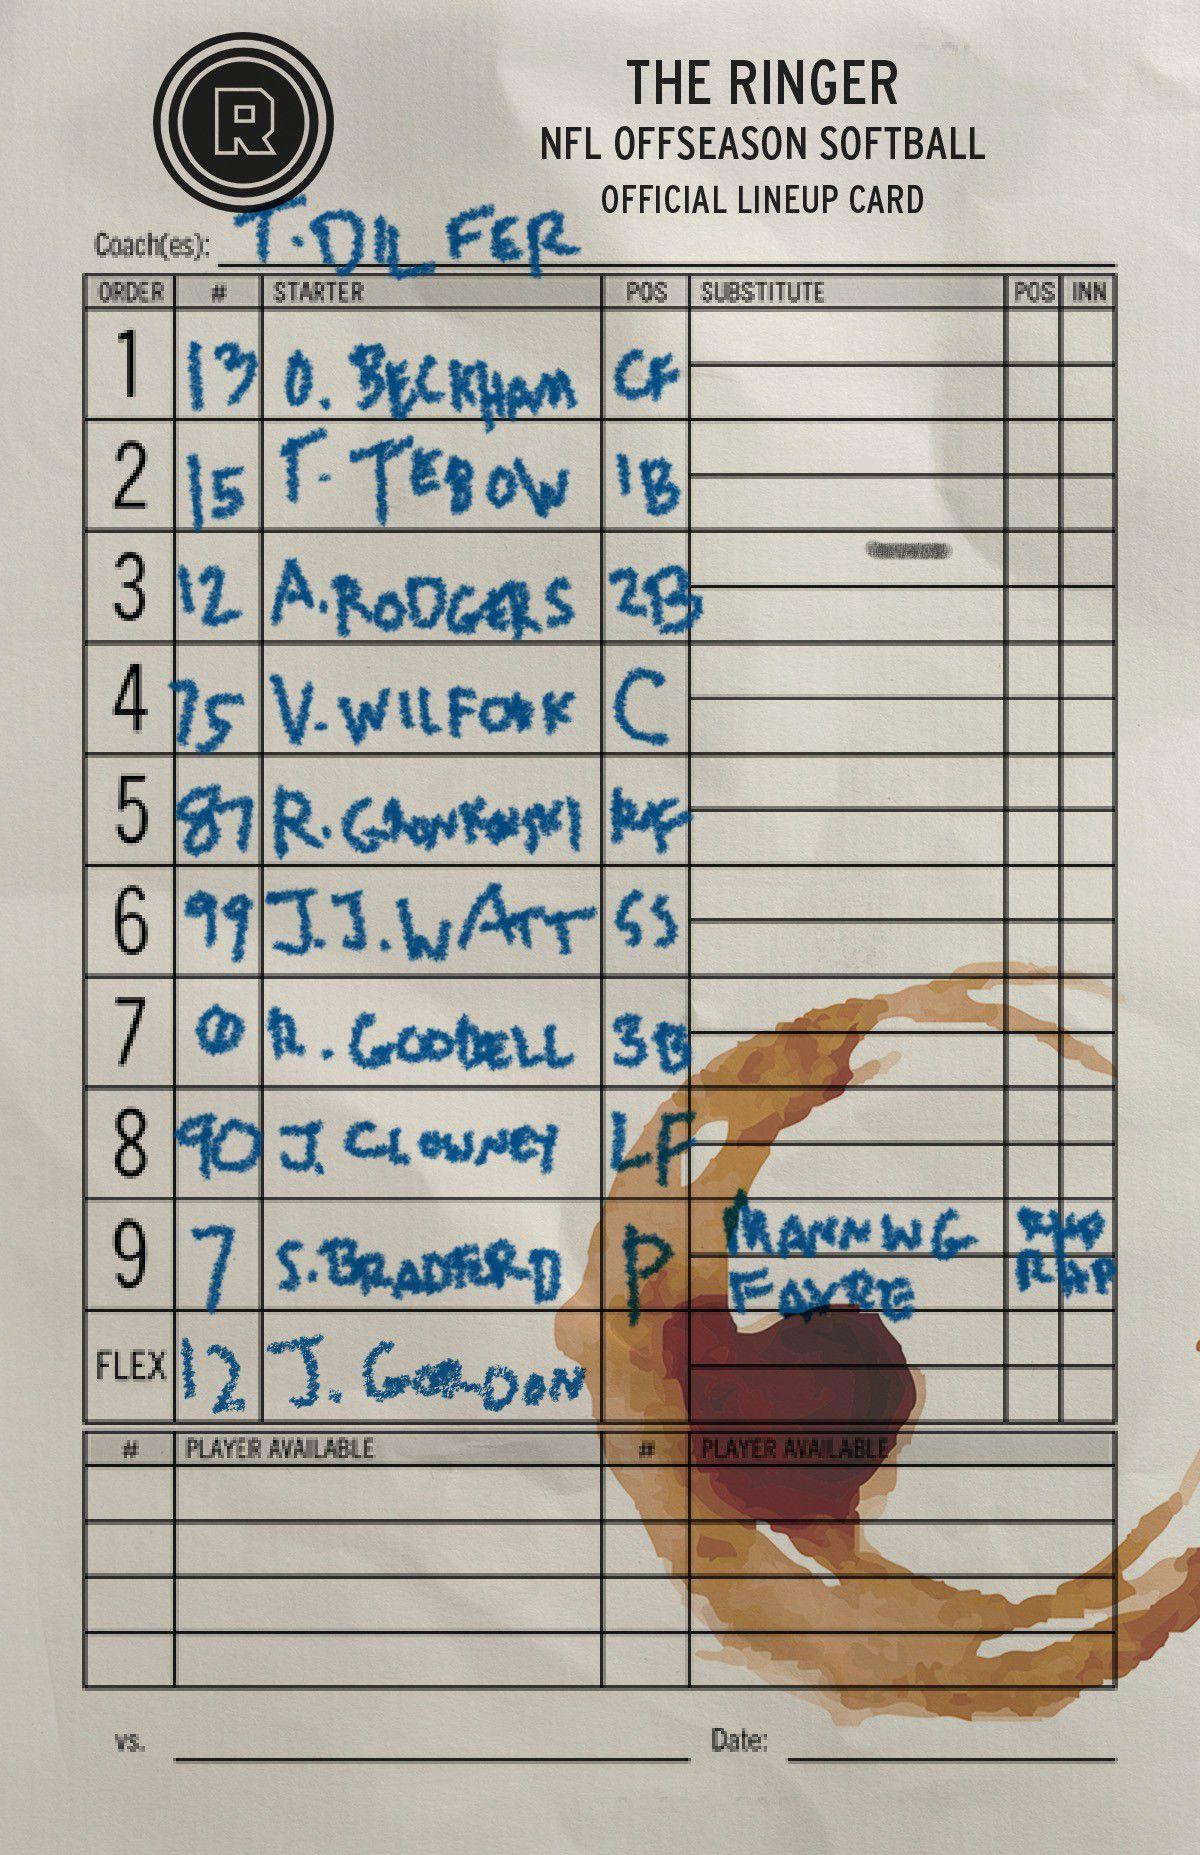 R
THE RINGER
NFL OFFSEASON SOFTBALL
OFFICIAL LINEUP CARD
Coach(es): T. DILFER
ORDER # STARTER POS SUBSTITUTE POS INN
1 13 O. BECKHAM CF
2 15 T. TEBOW 1B
3 12 A. RODGERS 2B
4 75 V. WILFORK C
5 87 R. GRONKOWSKI RF
6 99 J.J. WATT SS
7 0 R. GOODELL 3B
8 90 J. CLOWNEY LF
9 7 S. BRADFORD P MANNING RHP
FAVRE RHP
FLEX 12 J. GORDON
# PLAYER AVAILABLE # PLAYER AVAILABLE
vs. Date: